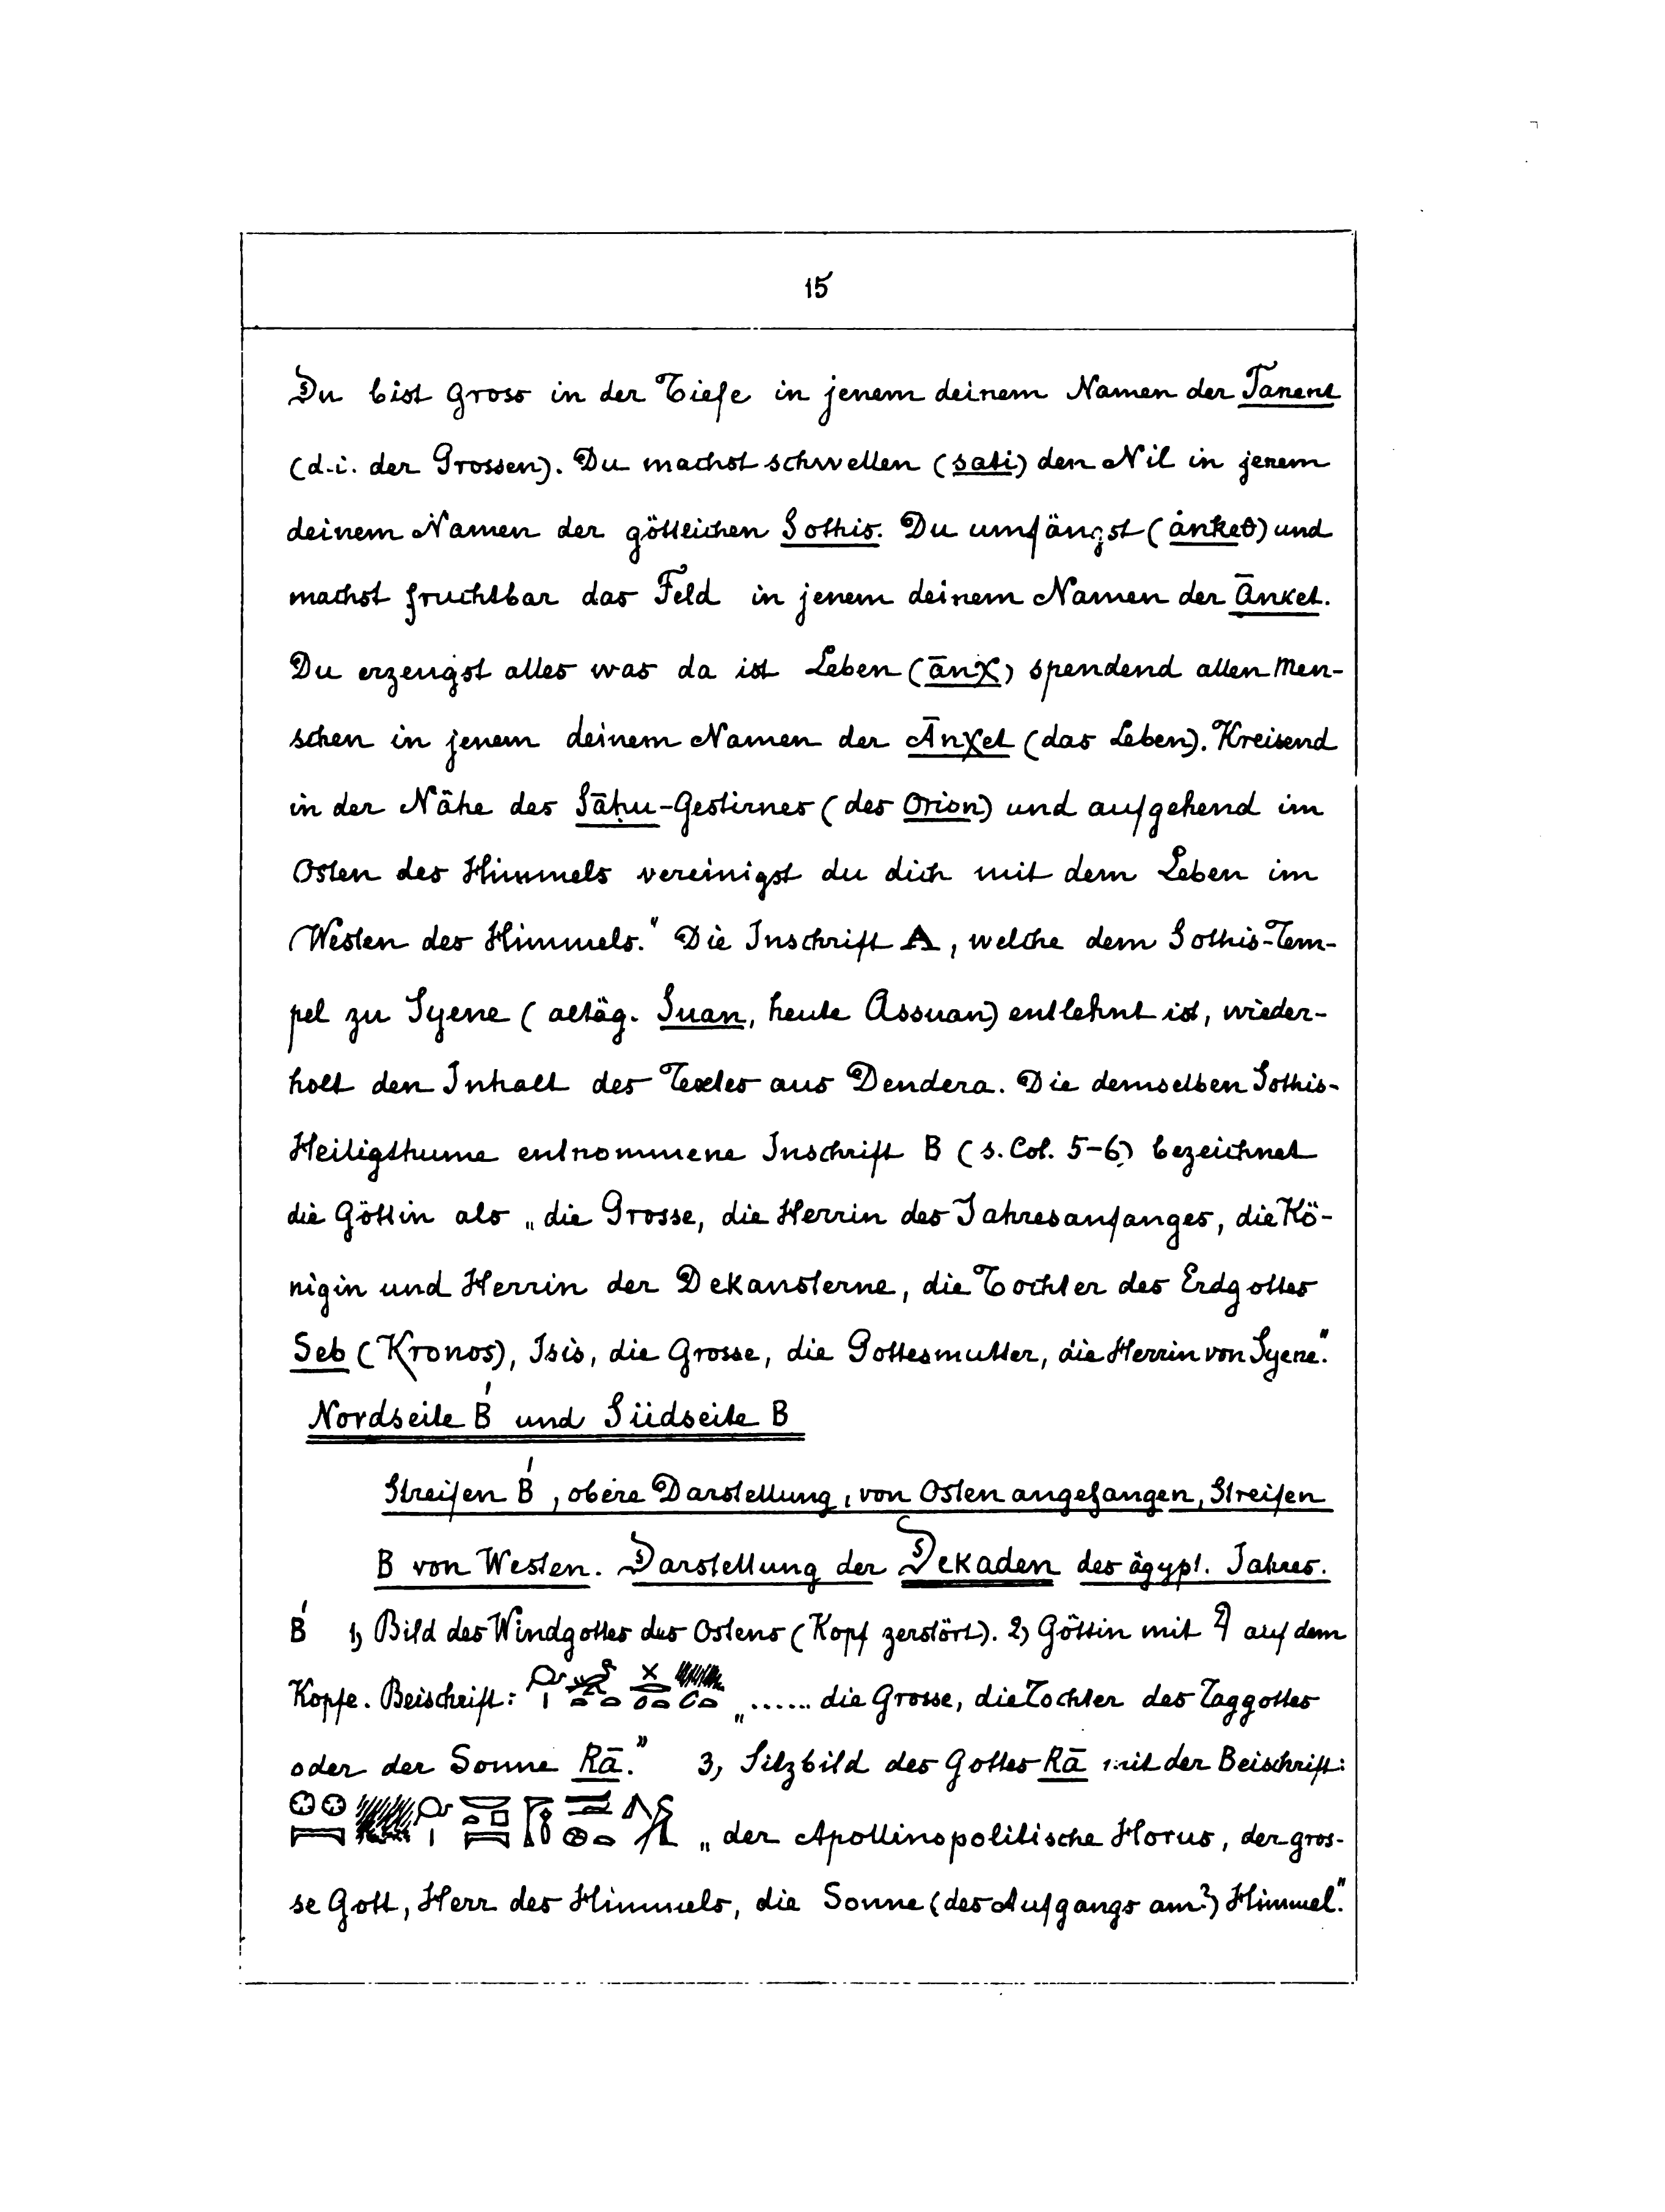 15
Du bist gross in der Tiefe in jenem deinem Namen der Tanent
(d.i. der Grossen). Du machst schwellen (sati) den Nil in jenem
deinem Namen der göttlichen Sothis. Du umfängst (ȧnkeθ) und
machst fruchtbar das Feld in jenem deinem Namen der Ānket.
Du erzeugst alles was da ist Leben (ānχ) spendend allen Men-
schen in jenem deinem Namen der Ānχet (das Leben). Kreisend
in der Nähe des Sāḥu-Gestirnes (des Orion) und aufgehend im
Osten des Himmels vereinigst du dich mit dem Leben im
Westen des Himmels." Die Inschrift A, welche dem Sothis-Tem-
pel zu Syene (altäg. Suan, heute Assuan) entlehnt ist, wieder-
holt den Inhalt des Textes aus Dendera. Die demselben Sothis-
Heiligthume entnommene Inschrift B (s. Col. 5-6) bezeichnet
die Göttin als „die Grosse, die Herrin des Jahresanfanges, die Kö-
nigin und Herrin der Dekansterne, die Tochter des Erdgottes
Seb (Kronos), Isis, die Grosse, die Gottesmutter, die Herrin von Syene."
Nordseite B' und Südseite B
Streifen B', obere Darstellung, von Osten angefangen, Streifen
B von Westen. Darstellung der Dekaden des ägypt. Jahres.
B' 1, Bild des Windgottes des Ostens (Kopf zerstört). 2, Göttin mit auf dem
Kopfe. Beischrift: „...... die Grosse, die Tochter des Taggottes
oder der Sonne Rā." 3, Sitzbild des Gottes Rā mit der Beischrift:
„der Apollinopolitische Horus, der gros-
se Gott, Herr des Himmels, die Sonne (des Aufgangs am?) Himmel."